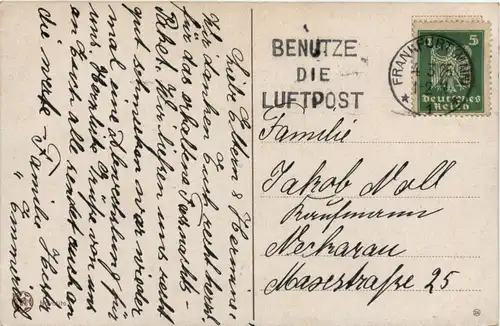 Liebe Eltern & Hermine.
Wir danken Euch recht herzl.
für das erhaltene Fastnachts-
Paket. Wir ließen uns recht
gut schmecken war wieder
mal eine Abwechslung für
uns. Herzliche Grüße von uns
an Euch alle sendet auch an
die
Familie
"
BENUTZE
DIE
LUFTPOST
FRANKFURT (MAIN)
5 5
Deutsches
Reich
Familie
Jakob Noll
Kaufmann
Neckarau
Maxestraße 25